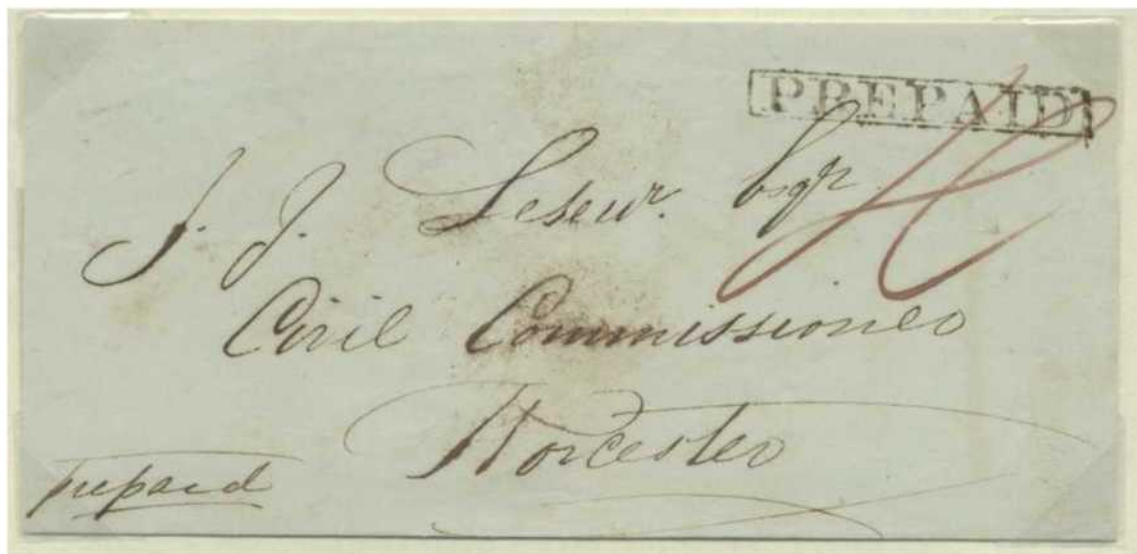 PREPAID
J. J. Leseur. Esqr
Civil Commissioner
Worcester
Prepaid